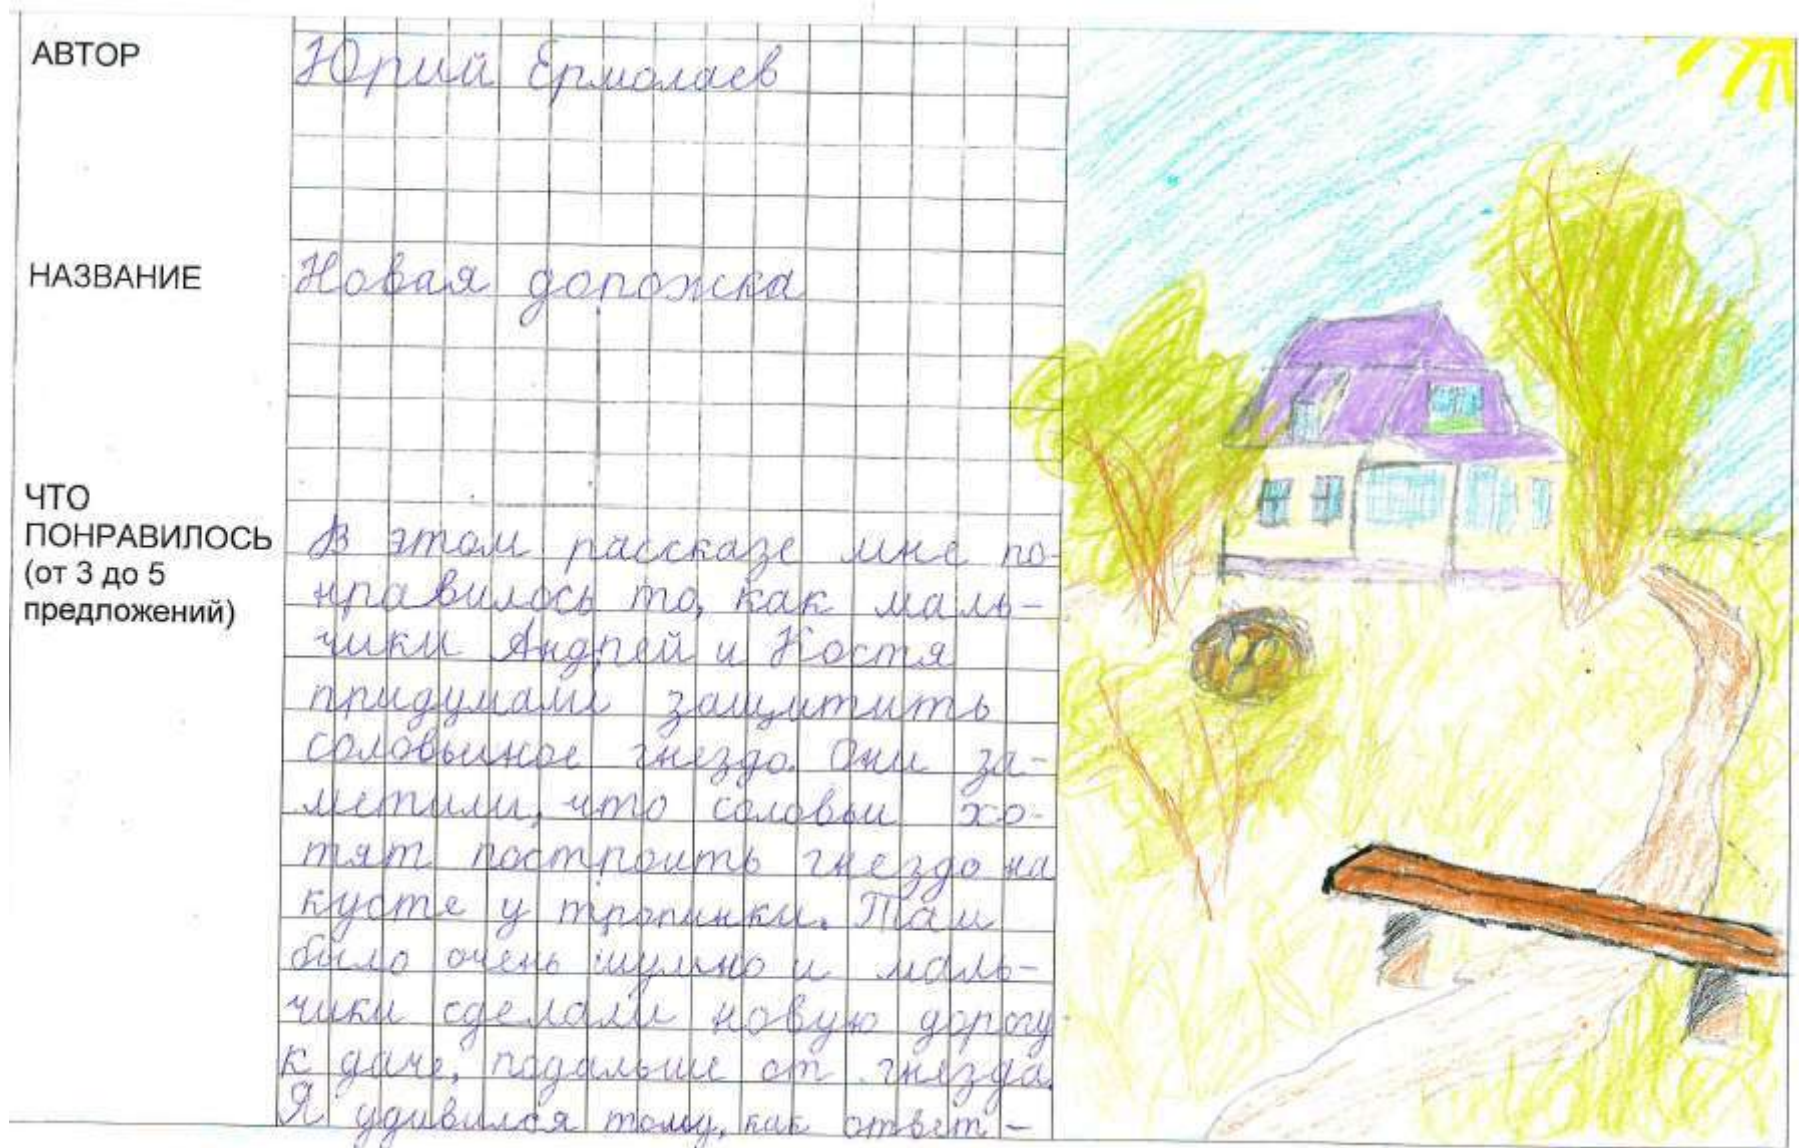 АВТОР
Юрий Ермолаев
НАЗВАНИЕ
Новая дорожка
ЧТО
ПОНРАВИЛОСЬ
(от 3 до 5
предложений)
В этом рассказе мне по-
нравилось то, как маль-
чики Андрей и Костя
придумали защитить
соловьиное гнездо. Они за-
метили, что соловьи хо-
тят построить гнездо на
кусте у тропинки. Там
было очень шумно и маль-
чики сделали новую дорогу
к даче, подальше от гнезда.
Я удивился тому, как ответ-